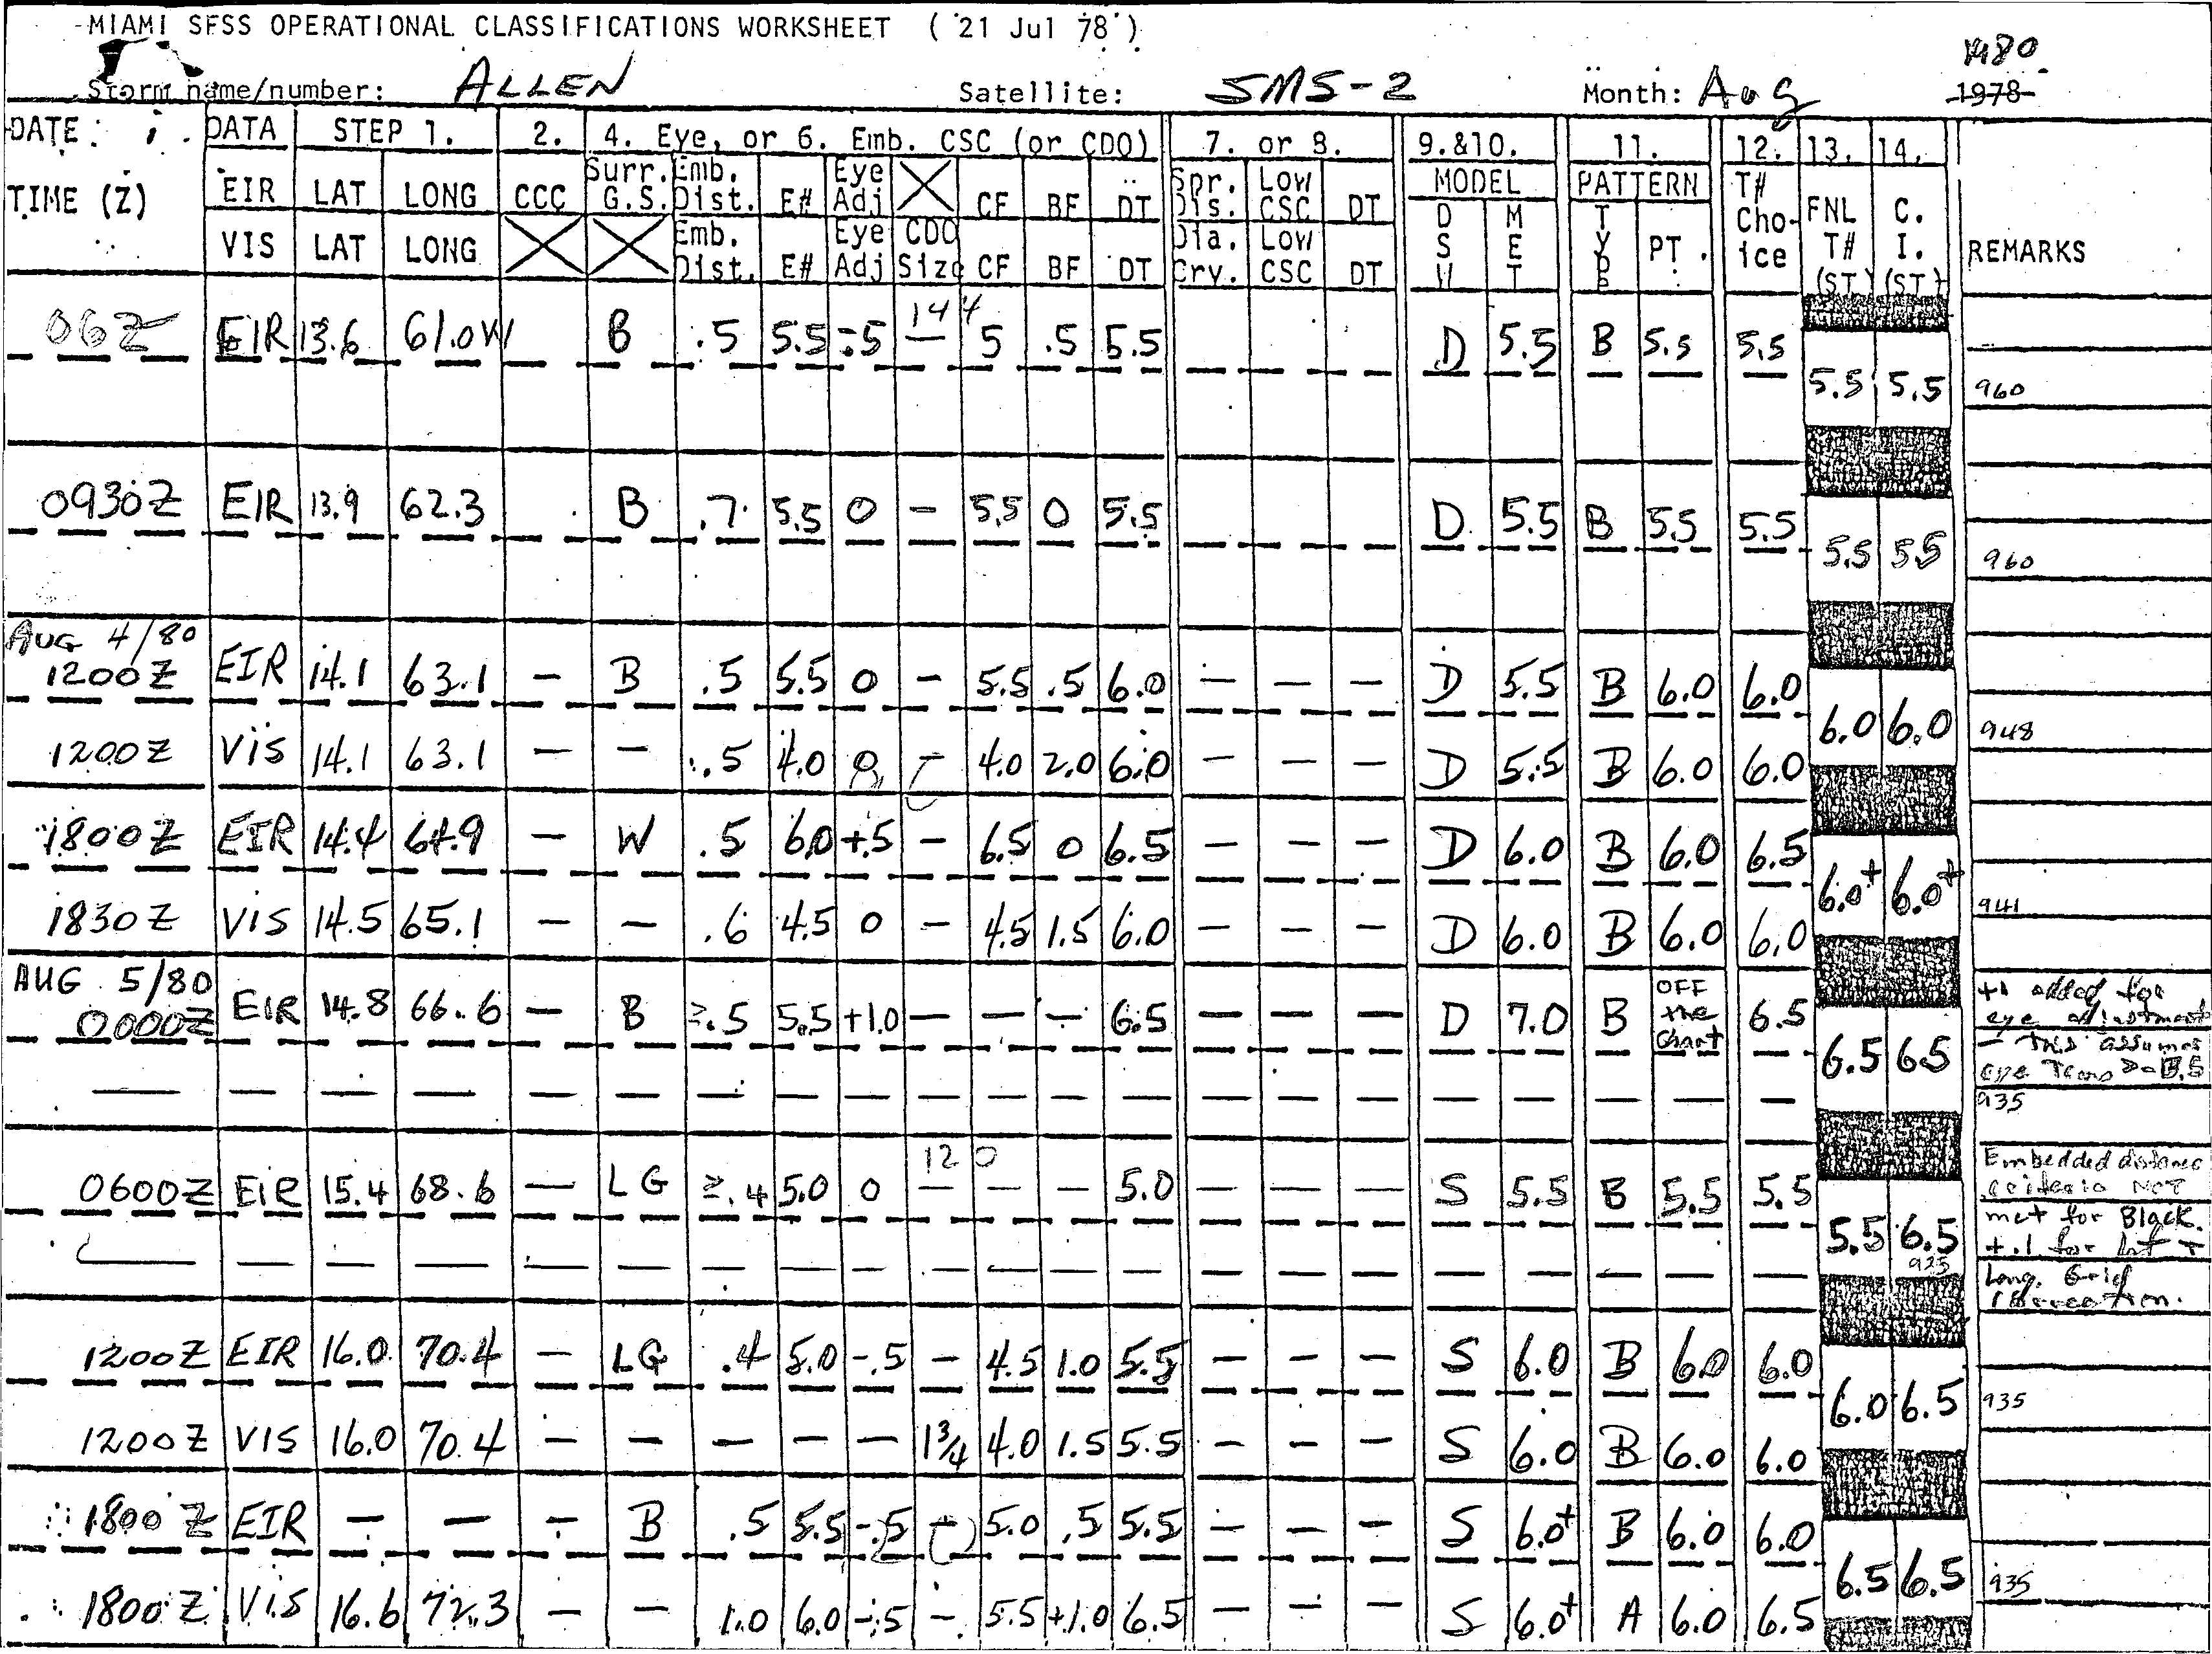 MIAMI SFSS OPERATIONAL CLASSIFICATIONS WORKSHEET ( 21 Jul 78 )
1980
Storm name/number: ALLEN Satellite: SMS-2 Month: Aug 1978
DATE: DATA STEP 1. 2. 4. Eye, or 6. Emb. CSC (or CDO) 7. or 8. 9.&10. 11. 12. 13. 14.
TIME (Z) EIR LAT LONG CCC Surr. G.S. Emb. Dist. E# Eye Adj CF BF DT Spr. Dis. Low CSC DT MODEL PATTERN T# Choice FNL T# (ST) C. I. (ST) REMARKS
VIS LAT LONG Emb. Dist. E# Eye Adj CDO Size CF BF DT Dia. Crv. Low CSC DT D S W M E T T Y P E PT.
144
06Z EIR 13.6 61.0W B .5 5.5 -.5 — 5 .5 5.5 D 5.5 B 5.5 5.5
5.5 5.5 960
0930Z EIR 13.9 62.3 B .7 5.5 0 — 5.5 0 5.5 D 5.5 B 5.5 5.5
5.5 5.5 960
AUG 4/80
1200Z EIR 14.1 63.1 — B .5 5.5 0 — 5.5 .5 6.0 — — — D 5.5 B 6.0 6.0
6.0 6.0 948
1200Z VIS 14.1 63.1 — — .5 4.0 0 — 4.0 2.0 6.0 — — — D 5.5 B 6.0 6.0
1800Z EIR 14.4 64.9 — W .5 6.0 +.5 — 6.5 0 6.5 — — — D 6.0 B 6.0 6.5
6.0+ 6.0+ 941
1830Z VIS 14.5 65.1 — — .6 4.5 0 — 4.5 1.5 6.0 — — — D 6.0 B 6.0 6.0
AUG 5/80
0000Z EIR 14.8 66.6 — B ≥.5 5.5 +1.0 — — — 6.5 — — — D 7.0 B OFF the Chart 6.5
6.5 6.5
+1 added for
eye adjustment
— this assumes
eye
935
120
0600Z EIR 15.4 68.6 — LG ≥.4 5.0 0 — — — 5.0 — — — S 5.5 B 5.5 5.5
5.5 6.5
925
Embedded distance
criteria NOT
met for Black.
+.1 for
Long. Grid
1200Z EIR 16.0 70.4 — LG .4 5.0 -.5 — 4.5 1.0 5.5 — — — S 6.0 B 6.0 6.0
6.0 6.5 935
1200Z VIS 16.0 70.4 — — — — — 1 3/4 4.0 1.5 5.5 — — — S 6.0 B 6.0 6.0
1800Z EIR — — — B .5 5.5 -.5 — 5.0 .5 5.5 — — — S 6.0+ B 6.0 6.0
6.5 6.5 935
1800Z VIS 16.6 72.3 — — 1.0 6.0 -.5 — 5.5 +1.0 6.5 — — — S 6.0+ A 6.0 6.5